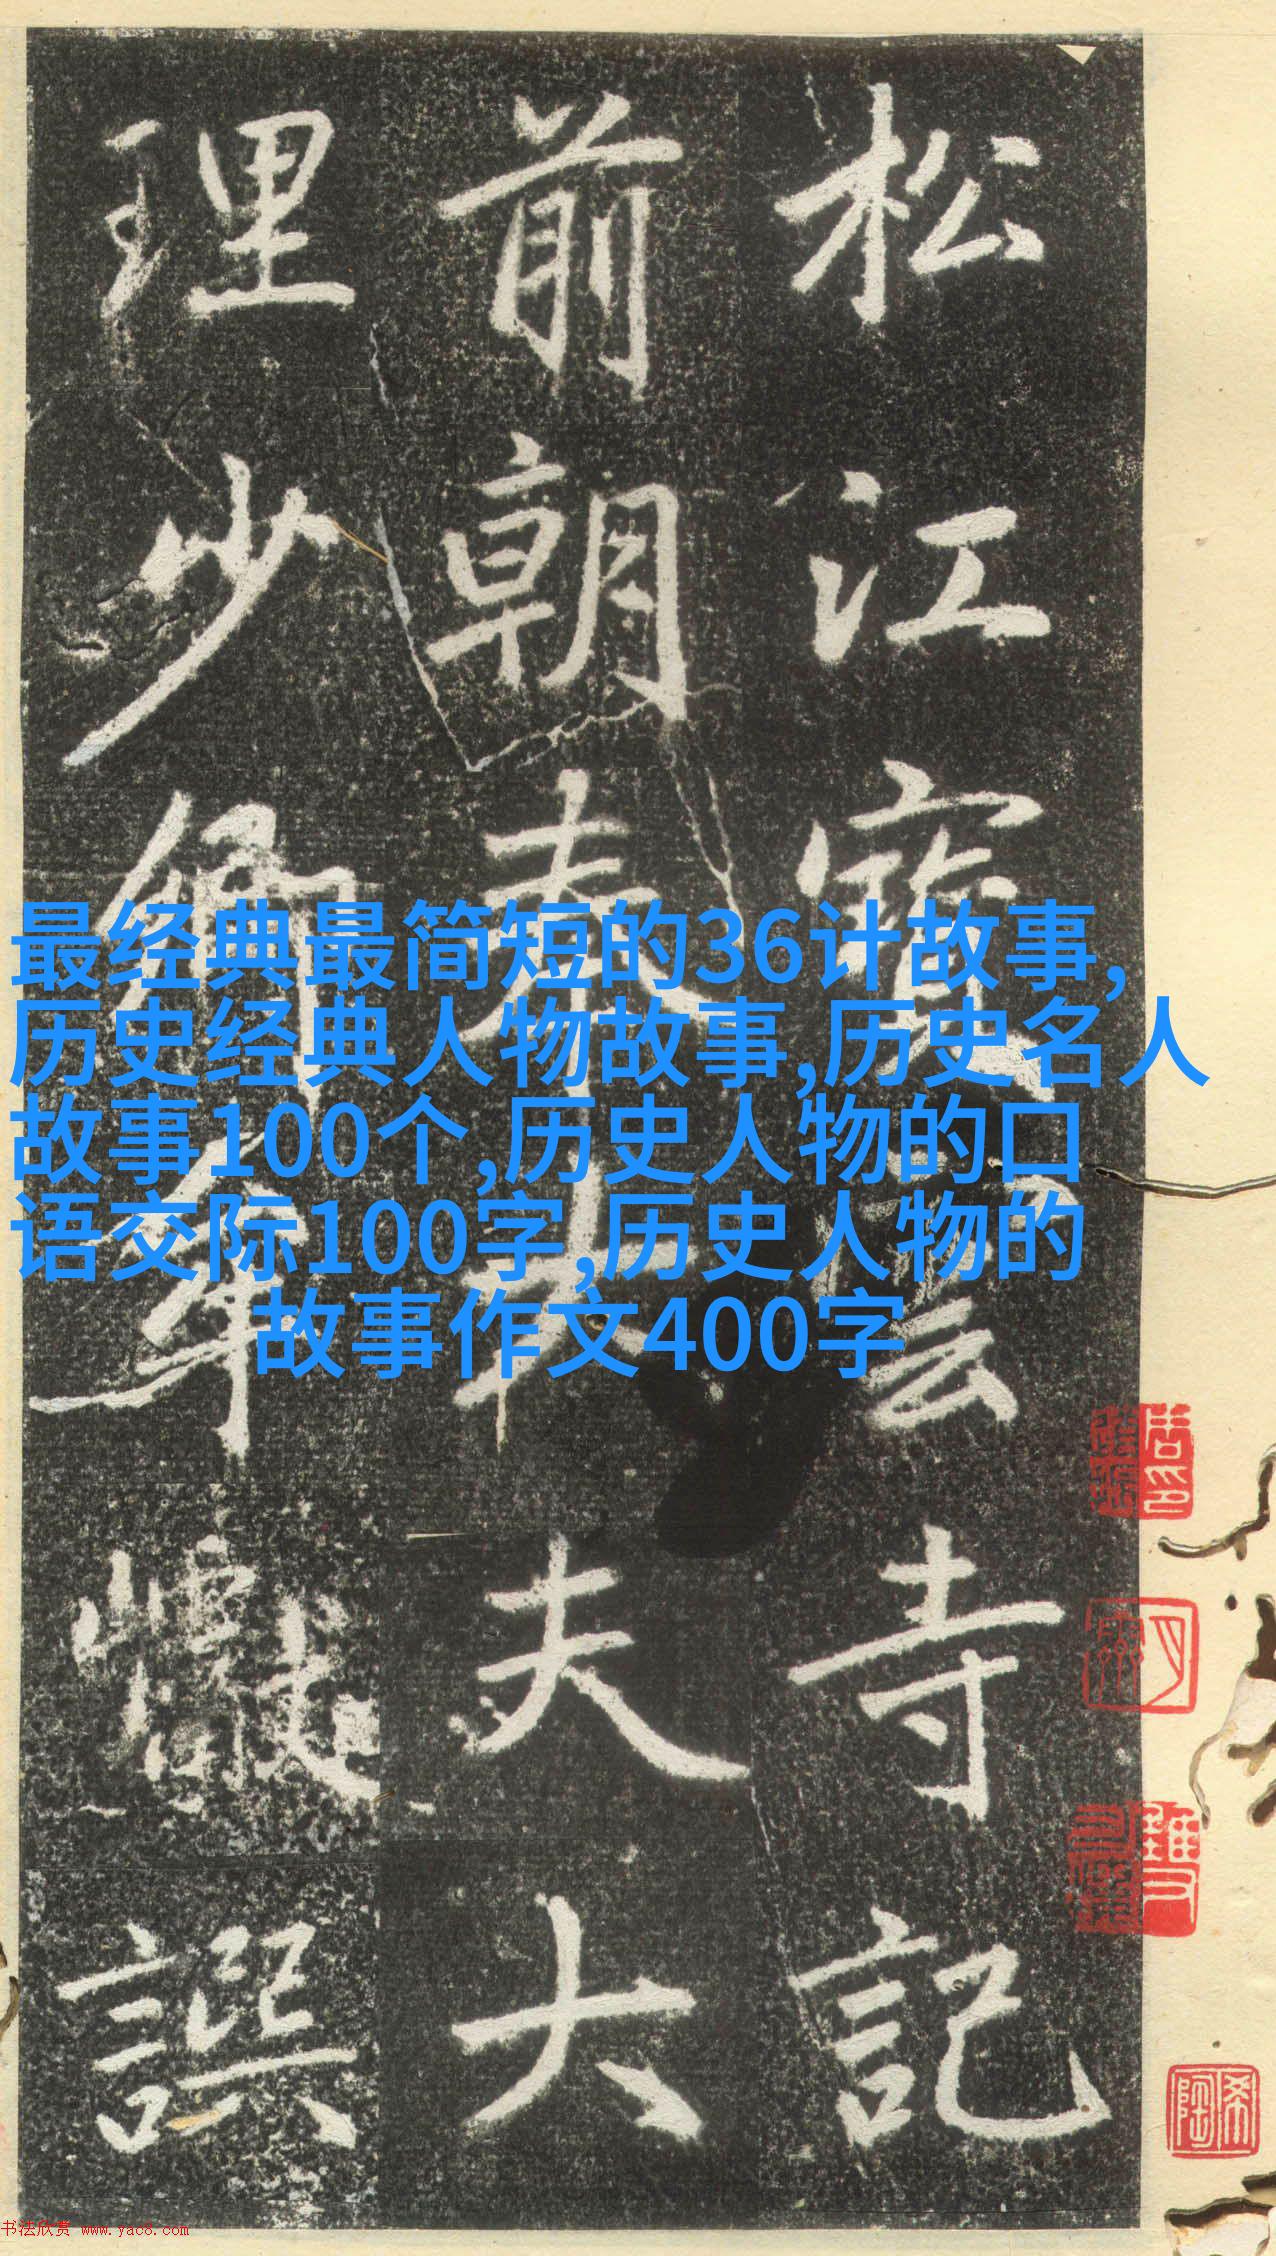 松江寶雲寺記
前朝奉大夫大
理少卿牟譔
最经典最简短的36计故事,
历史经典人物故事,历史名人
故事100个,历史人物的口
语交际100字,历史人物的
故事作文400字
希陶
书法欣赏 www.yac8.com